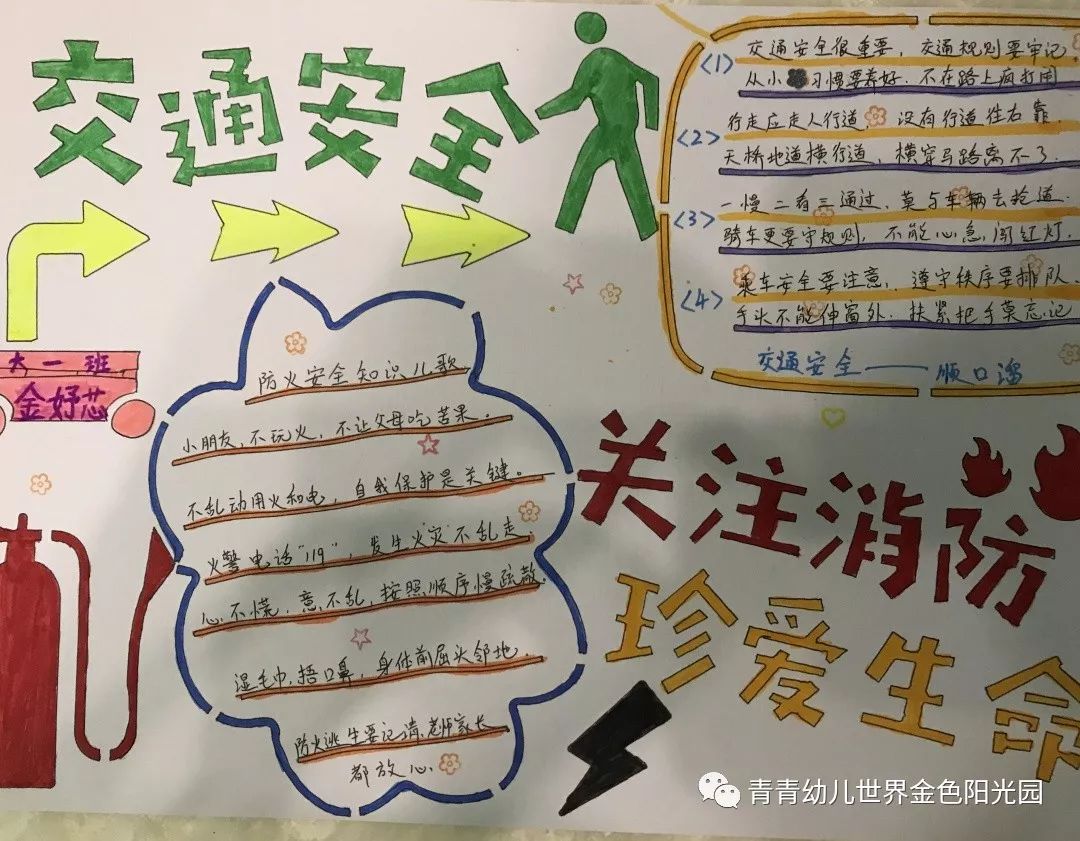 交通安全
<1> 交通安全很重要，交通规则要牢记
从小习惯要养好．不在路上疯打闹
<2> 行走应走人行道，没有行道往右靠．
天桥地道横行道，横穿马路离不了．
<3> 一慢二看三通过，莫与车辆去抢道．
骑车更要守规则，不能心急闯红灯．
<4> 乘车安全要注意，遵守秩序要排队．
手头不能伸窗外．扶紧把手莫忘记
交通安全——顺口溜
大一班
金妤芯
防火安全知识儿歌
小朋友，不玩火，不让父母吃苦果．
不乱动用火和电，自我保护是关键。
火警电话“119”，发生火灾不乱走
心不慌，意不乱，按照顺序慢疏散．
湿毛巾，捂口鼻，身体前屈头邻地．
防火逃生要记清，老师家长
都放心．
关注消防
珍爱生命
青青幼儿世界金色阳光园